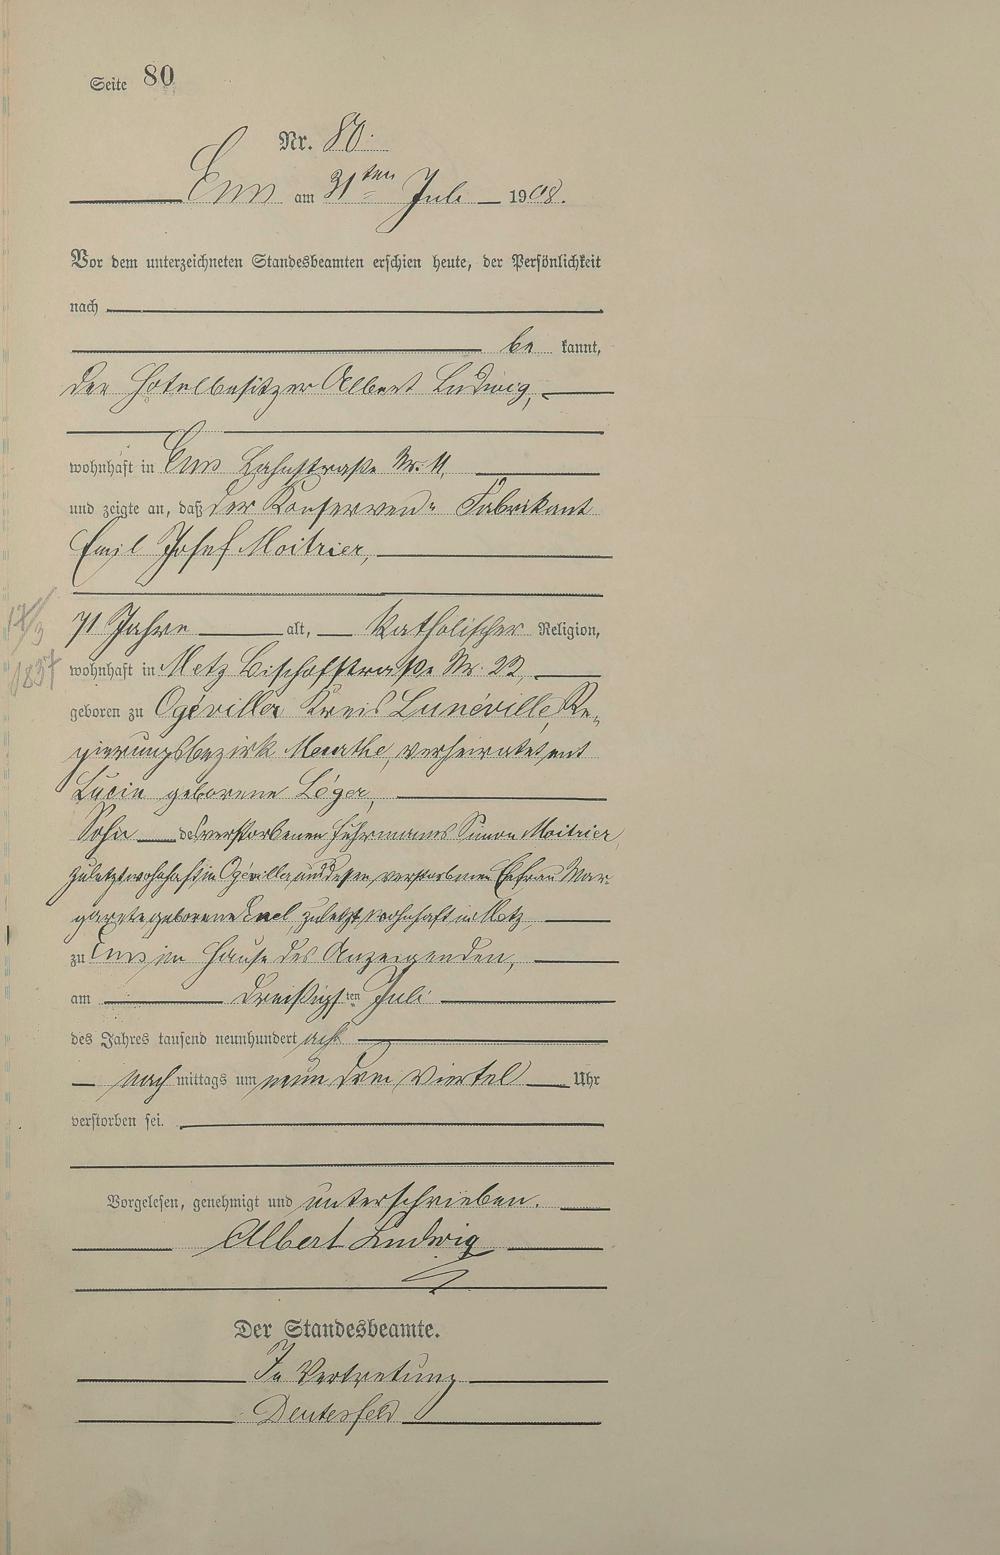 Seite 80
Nr. 80.
Ems am 31ten Juli 1908.
Vor dem unterzeichneten Standesbeamten erschien heute, der Persönlichkeit
nach
be kannt,
der Hotelbesitzer Albert Ludwig,
wohnhaft in Ems Lahnstraße Nr. 11,
und zeigte an, daß der Konserven- Fabrikant
Emil Josef Moitrier,
17/3
71 Jahre alt, Katholischer Religion,
1837
wohnhaft in Metz Bischofstraße Nr. 22,
geboren zu Ogéviller Kreis Lunéville, Re-
gierungsbezirk Meurthe, verheiratet mit
Lucie geborene Léger,
Sohn des verstorbenen Fuhrmanns Simon Moitrier,
zuletzt wohnhaft in Ogéviller und dessen verstorbenen Ehefrau Mar-
garete geborene zuletzt wohnhaft in Metz,
zu Ems im Hause des Anzeigenden,
am dreißigsten Juli
des Jahres tausend neunhundert acht
nach mittags um neun drei Viertel Uhr
verstorben sei.
Vorgelesen, genehmigt und unterschrieben.
Albert Ludwig
Der Standesbeamte.
In Vertretung